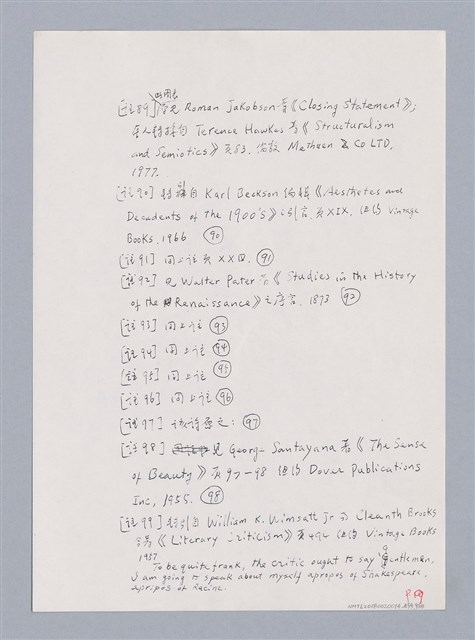 [註89] 見 Roman Jakobson 著《Closing Statement》;
本人轉錄自 Terence Hawkes 著《Structuralism
and Semiotics》頁83. 倫敦 Methuen & Co LTD,
1977.
[註90] 轉錄自 Karl Beckson 編輯《Aesthetes and
Decadents of the 1900's》之引言,頁XIX, 紐約 Vintage
Books, 1966 (90)
[註91] 同上註 頁 XX. (91)
[註92] 見 Walter Pater 著《Studies in the History
of the Renaissance》之序言, 1873 (92)
[註93] 同上註 (93)
[註94] 同上註 (94)
[註95] 同上註 (95)
[註96] 同上註 (96)
[註97] 該詩原文: (97)
[註98] 見 George Santayana 著《The Sense
of Beauty》頁97-98 紐約 Dover Publications
Inc, 1955. (98)
[註99] 引自 William K. Wimsatt Jr 和 Cleanth Brooks
合著《Literary Criticism》頁494 紐約 Vintage Books
1957
To be quite frank, the critic ought to say Gentlemen,
I am going to speak about myself apropos of Shakespeare,
apropos of Racine.
P.59